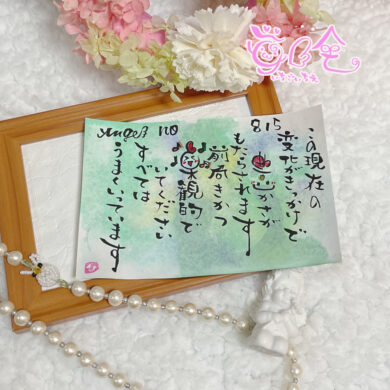 815
この現在の
変化がきっかけで
豊かさが
もたらされます
前向きかつ
楽観的で
いてください
すべては
うまくいっています
Angel No